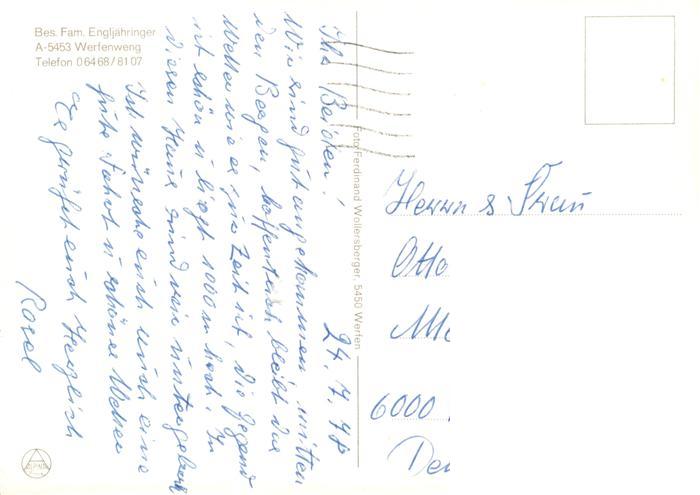 Bes. Fam. Engljähringer
A-5453 Werfenweng
Telefon 0 64 68 / 81 07
24. 7. 78
Ihr Beiden!
Wir sind gut angekommen, mitten
in den Bergen, hoffentlich bleibt das
Wetter wie es zur Zeit ist, die Gegend
ist schön u. liegt 1000 m hoch. In
diesem Haus sind wir untergebracht
Ich wünsche euch noch eine
gute Fahrt u. schönes Wetter
Es grüßt euch herzlich
Rosel
Foto Ferdinand Wollersberger, 5450 Werfen
Herrn & Frau
Otto
6000